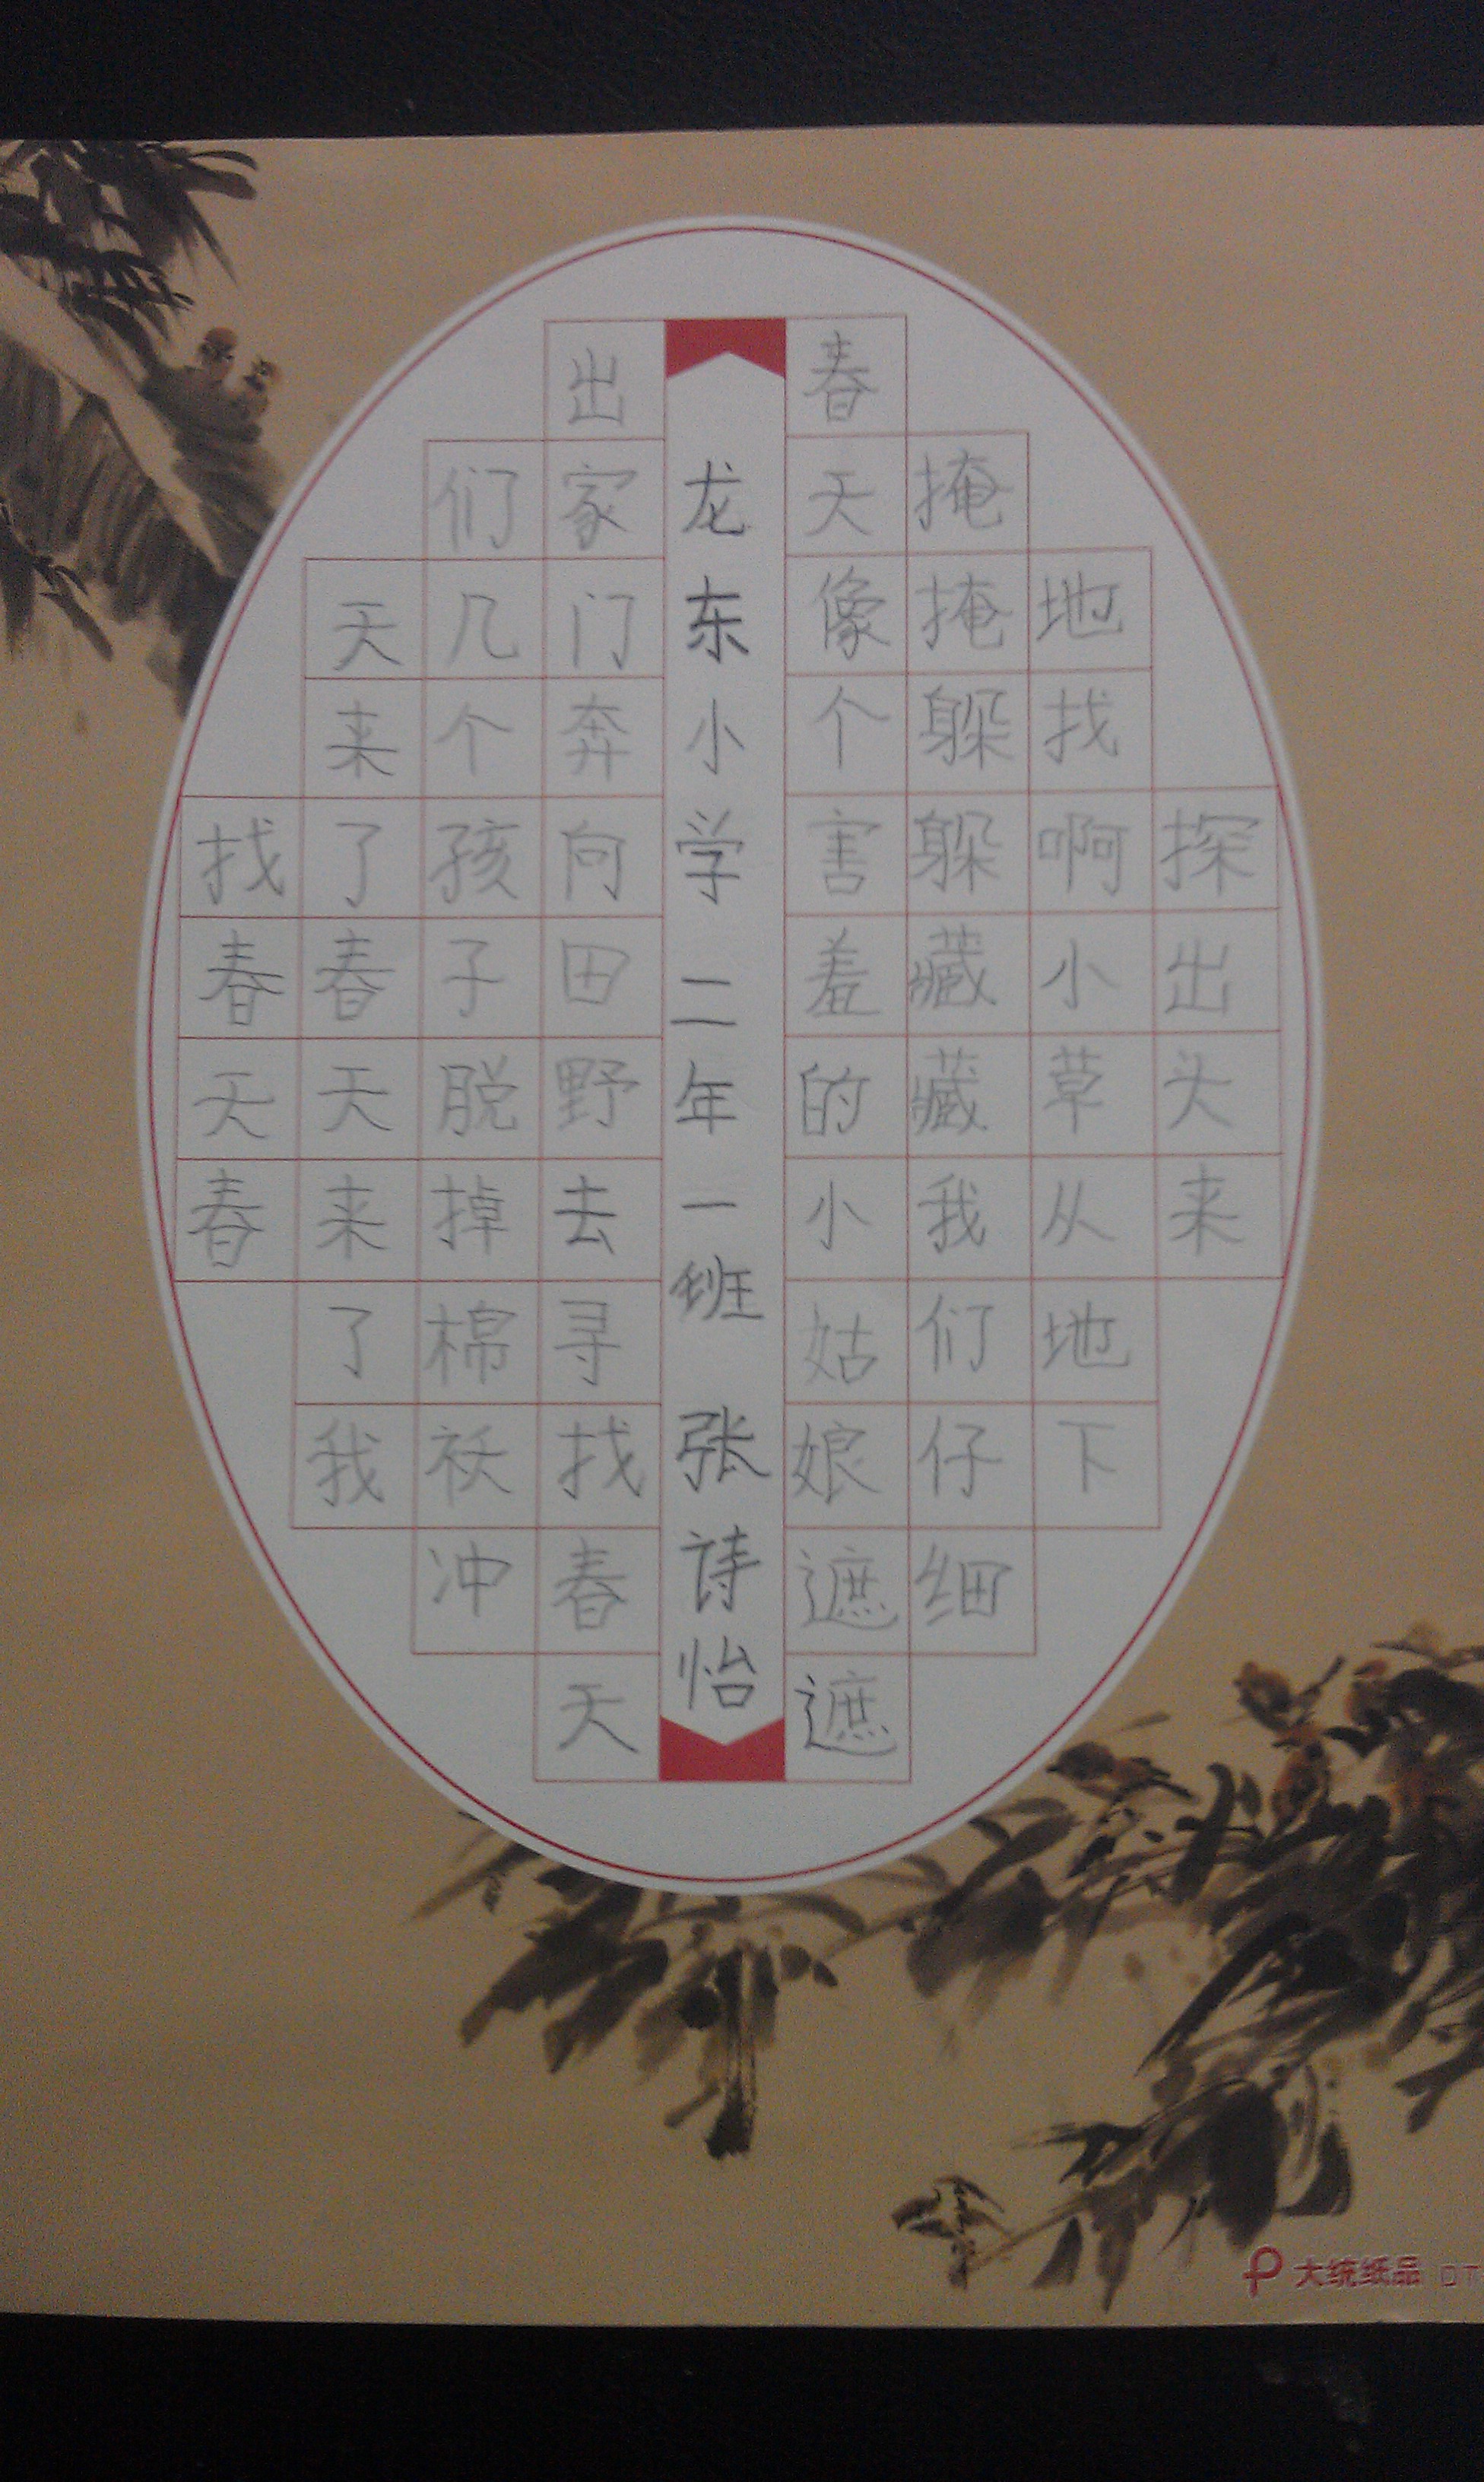 找春天春
天来了春天来了我
们几个孩子脱掉棉袄冲
出家门奔向田野去寻找春天
龙东小学 二年一班 张诗怡
春天像个害羞的小姑娘遮遮
掩掩躲躲藏藏我们仔细
地找啊小草从地下
探出头来
大统纸品 DT